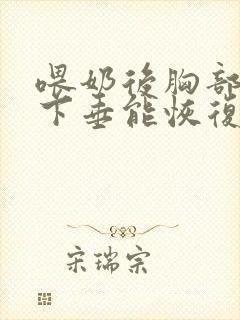 喂奶後胸部
下垂能恢復
宋瑞宗